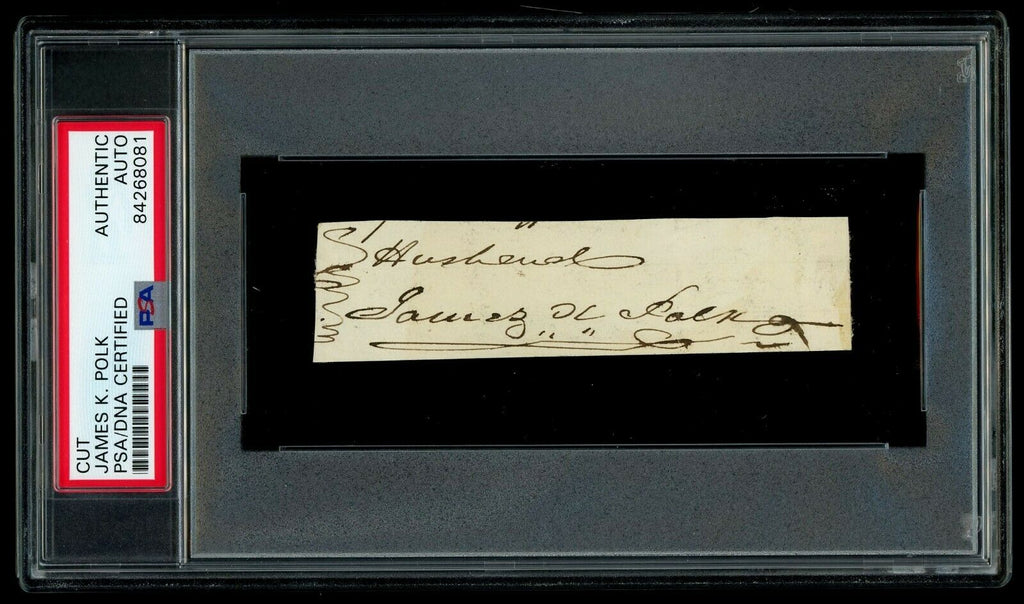 CUT AUTHENTIC
JAMES K. POLK AUTO
PSA/DNA CERTIFIED 84268081
PSA
Husband
James K Polk